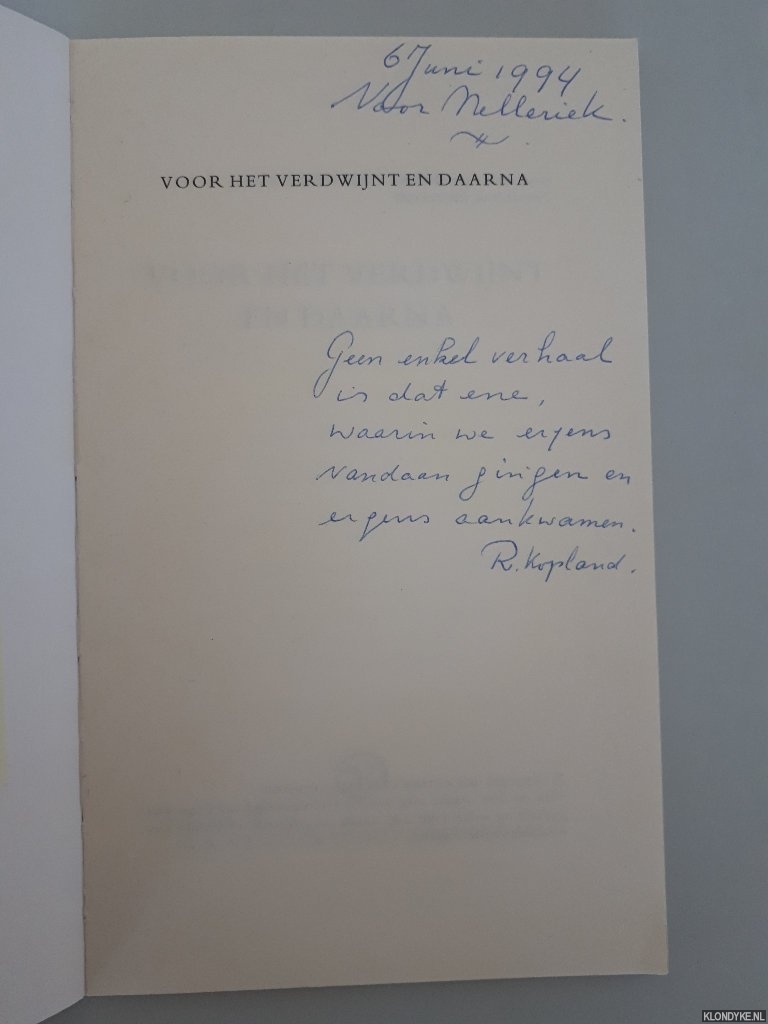 6 Juni 1994
Voor Nelleriek.
VOOR HET VERDWIJNT EN DAARNA
Geen enkel verhaal
is dat ene,
waarin we ergens
vandaan gingen en
ergens aankwamen.
R. Kopland.
KLONDYKE.NL